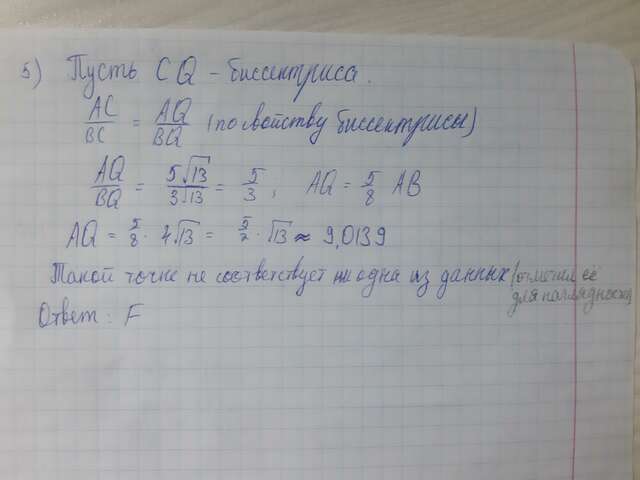 5) Пусть CQ - биссектриса.
AC/BC = AQ/BQ (по свойству биссектрисы)
AQ/BQ = 5√13/3√13 = 5/3, AQ = 5/8 AB
AQ = 5/8 · 4√13 = 5/2 · √13 ≈ 9,0139
Такой точке не соответствует ни одна из данных (отметил её
для наглядности)
Ответ: F